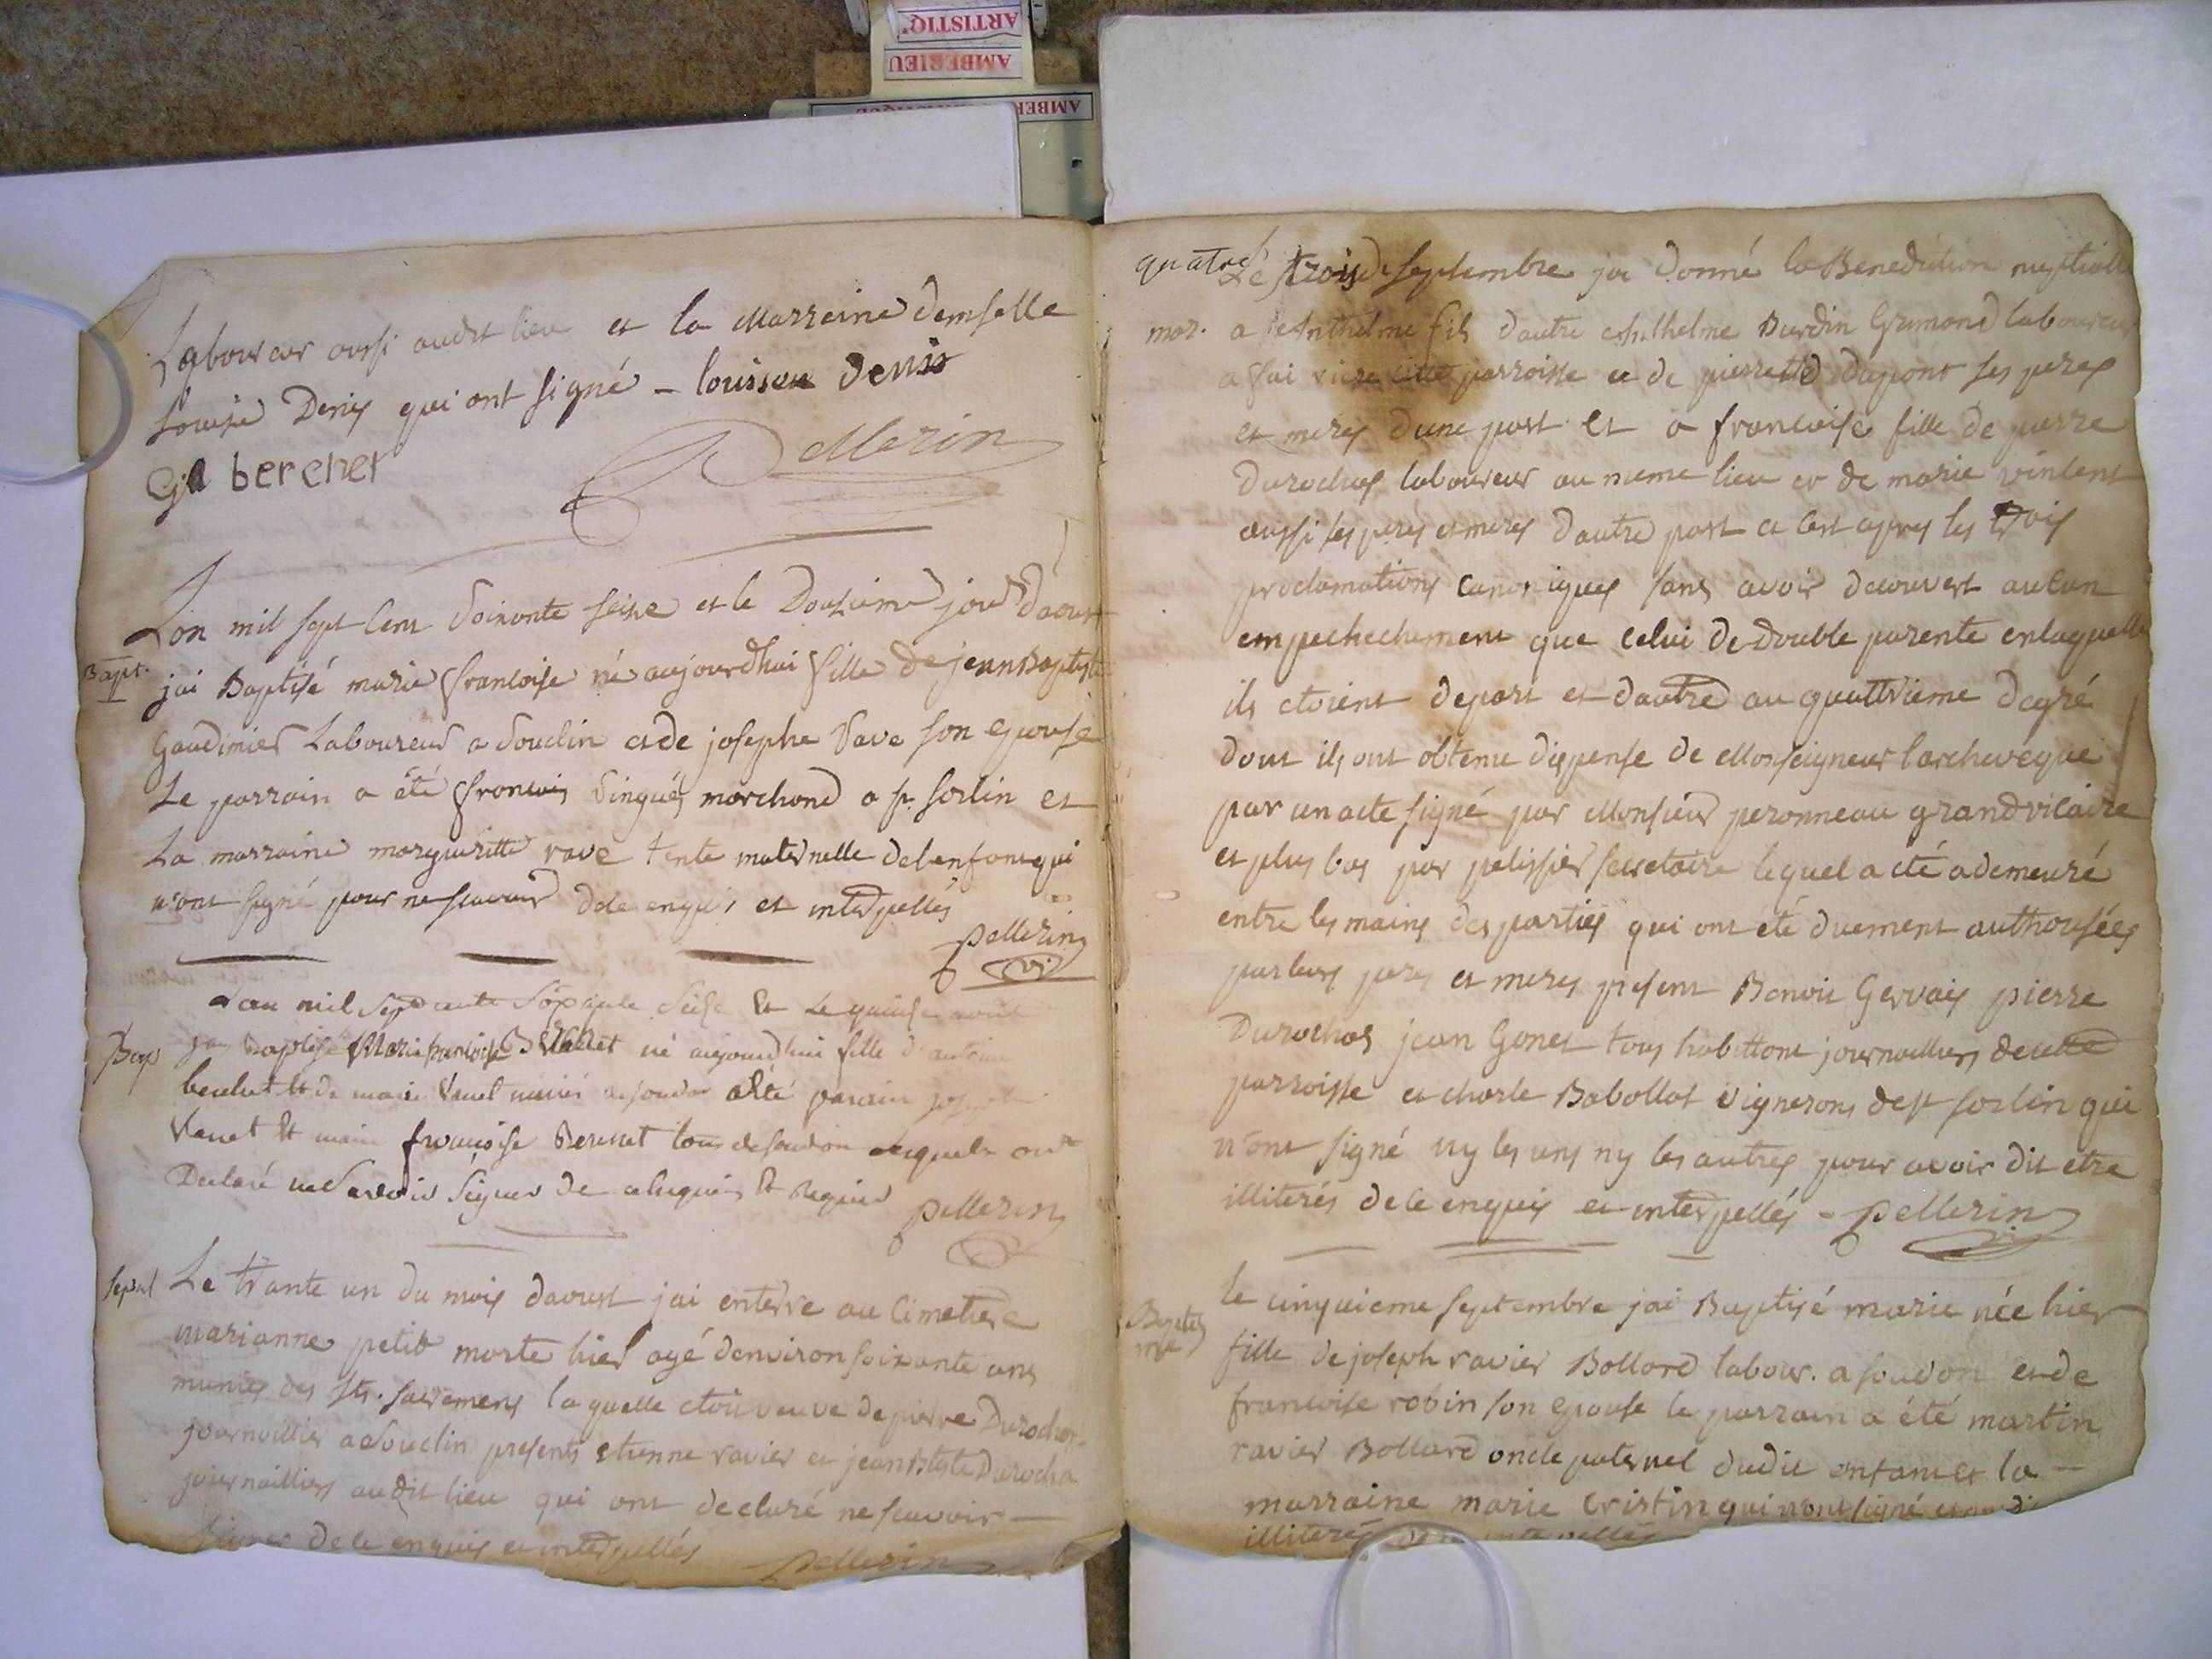 ARTISTIQ.
AMBERIEU
Laboureur aussi audit lieu et la Marreine demselle
Louise Denis qui ont signé – louisse denis
Gi berchet
Pellerin
Lan mil sept cent soixante seise et le Douzieme jour daoust
Bapt.
jai Baptisé marie francoise né aujourdhui fille de jean Baptiste
Gaudimier Laboureur a Souclin et de josephe Rave son epouse
Le parrain a été francois Vingués marchand a st. sorlin et
La marraine margueritte rave tente maternelle delenfant qui
n'ont signé pour ne scavoir dele enquis et interpellés
pellerin
Lan mil sept cents Soixante Seise Et Le quinse août
Bap
jay baptisé Marie francoise Berchet né aujourdhui fille d'antoine
berchet Et de marie Vanet a été parain
Vanet Et françoise Berchet tous de lesquels ont
Declaré ne Savoir Signer de ce enquis Et Requis
pellerin
sepul
Le trante un du mois daoust jai enterré au Cimetiere
marianne petit morte hier agé denviron soixante ans
munies des sts. sacremens laquelle etoit veuve de pierre Durochas
journaillier a Souclin presents etienne ravier et jean Btste Durochas
journailliers audit lieu qui ont declaré ne scavoir –
signer dele enquis et interpellés pellerin
quatre
Le trois de septembre jai donné la Benediction nuptialle
mar.
a Anthelme fils dautre Anthelme Burdin Grimond laboureur
a fai riere cette parroisse et de pierrette dupont ses peres
et meres dune part et a francoise fille de pierre
Durochas laboureur au meme lieu et de marie vincent
aussi ses peres et meres dautre part et cest apres les trois
proclamations canoniques sans avoir decouvert aucun
empechechement que celui de double parente en laquelle
ils etoient depart et dautre au quattrieme degré
dont ils ont obtenu dispense de Monseigneur larcheveque
par un acte signé par Monsieur peronneau grand vicaire
et plus bas par pelissier secretaire lequel acté a demeuré
entre les mains des parties qui ont eté duement authorisées
par leurs peres et meres present Benoit Gervais pierre
Durochas jean Gonet tous habittant journailliers de cette
parroisse et charle Babollat vignerons de st sorlin qui
n'ont signé ny les uns ny les autres pour avoir dit etre
illiterés dele enquis et interpellés – pellerin
le cinquieme septembre jai Baptisé marie née hier
Baptes
me
fille de joseph ravier Bollard labour. a soudon et de
francoise robin son epouse le parrain a été martin
ravier Bollard oncle paternel dudit enfant et la –
marraine marie cristin qui n'ont signé
illiterés